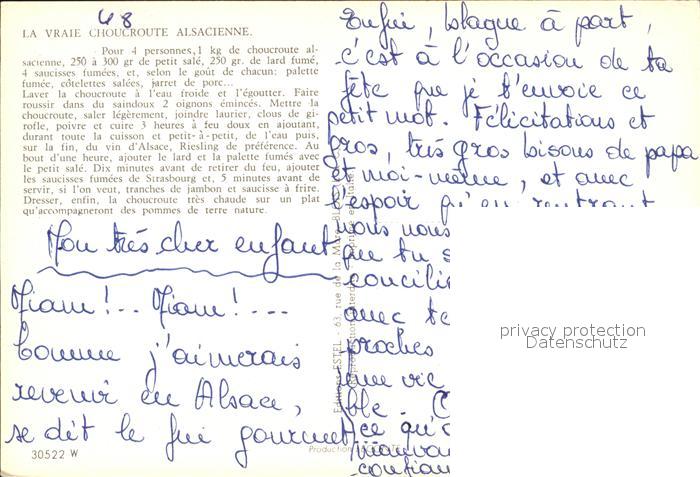 48
LA VRAIE CHOUCROUTE ALSACIENNE.
Pour 4 personnes, 1 kg de choucroute al-
sacienne, 250 à 300 gr de petit salé, 250 gr. de lard fumé,
4 saucisses fumées, et, selon le goût de chacun: palette
fumée, côtelettes salées, jarret de porc...
Laver la choucroute à l'eau froide et l'égoutter. Faire
roussir dans du saindoux 2 oignons émincés. Mettre la
choucroute, saler légèrement, joindre laurier, clous de gi-
rofle, poivre et cuire 3 heures à feu doux en ajoutant,
durant toute la cuisson et petit-à-petit, de l'eau puis,
sur la fin, du vin d'Alsace, Riesling de préférence. Au
bout d'une heure, ajouter le lard et la palette fumés avec
le petit salé. Dix minutes avant de retirer du feu, ajouter
les saucisses fumées de Strasbourg et, 5 minutes avant de
servir, si l'on veut, tranches de jambon et saucisse à frire.
Dresser, enfin, la choucroute très chaude sur un plat
qu'accompagneront des pommes de terre nature.
Mon très cher enfant
Miam !.. Miam !....
Comme j'aimerais
revenir en Alsace,
se dit le fin gourmet
30522 W
Enfin, blague à part,
c'est à l'occasion de ta
fête que je t'envoie ce
petit mot. Félicitations et
gros, très gros bisous de papa
et moi-même, et avec
l'espoir qu'en rentrant
nous nous
que tu s
concilie
avec te
proches
une vie
ble. C
ce qu'o
mauva
confian
Editions ESTEL - 63, rue de la
Production
privacy protection
Datenschutz